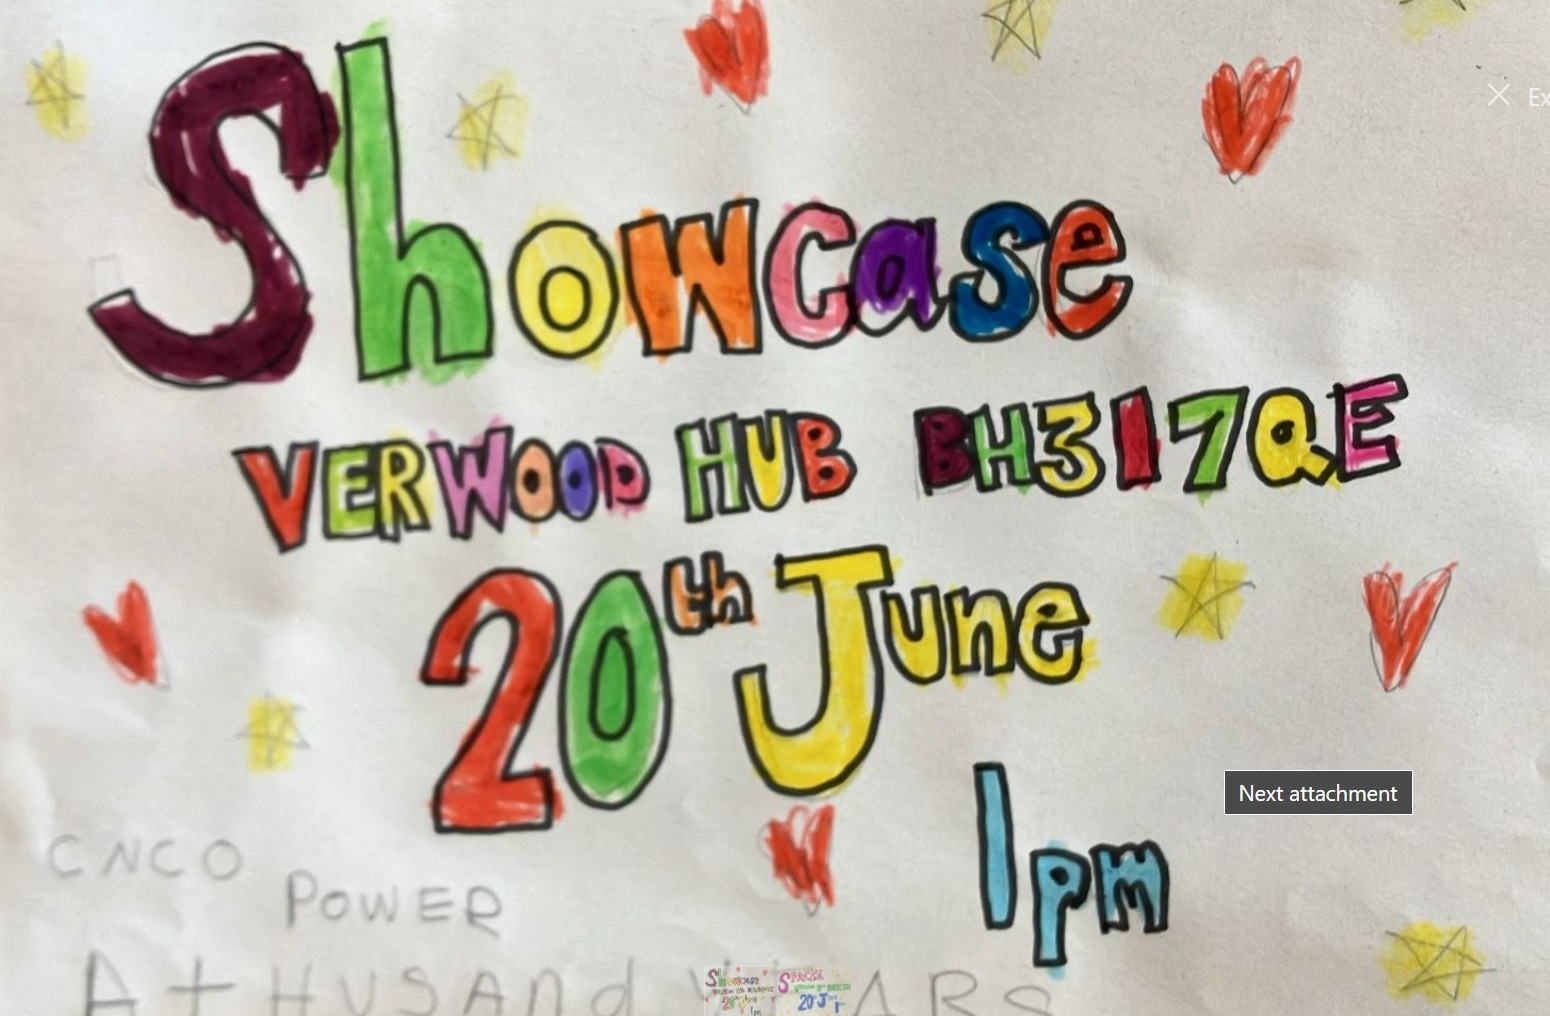 Ex
Showcase
VERWOOD HUB BH317QE
20th June
Next attachment
1pm
CNCO
POWER
A tHUSANd